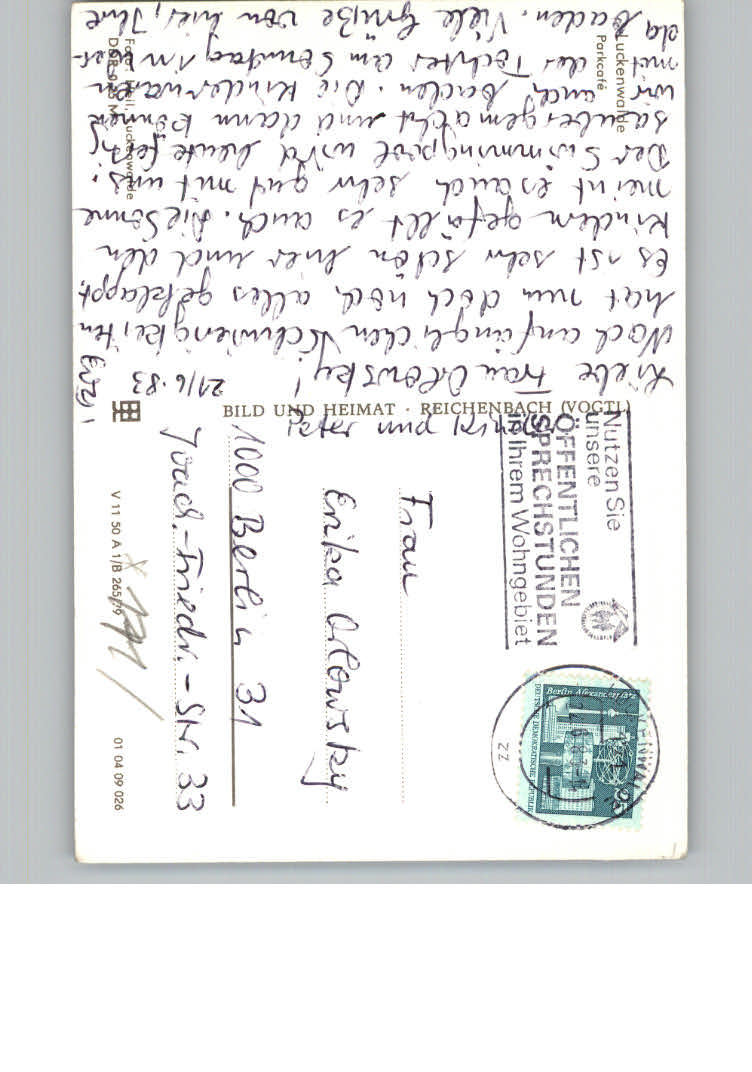 Liebe Frau Orlowsky! 21/6.83
Nach anfänglichen Schwierigkeiten
hat nun doch noch alles geklappt.
Es ist sehr schön hier und den
Kindern gefällt es auch. Die Sonne
meint es auch sehr gut mit uns.
Der Swimmingpool wird heute fertig
saubergemacht und dann können
wir auch baden. Die Kinder waren
mit der Tochter am Sonntag
da baden. Viele Grüße von hier, Ihre
Luckenwalde
Parkcafé
Foto: Luckenwalde
BILD UND HEIMAT · REICHENBACH (VOGTL)
V 11 50 A 1/B 265/79
01 04 09 026
Nutzen Sie
unsere
ÖFFENTLICHEN
SPRECHSTUNDEN
in Ihrem Wohngebiet
Berlin, Alexanderplatz
DEUTSCHE DEMOKRATISCHE REPUBLIK
25
zz
Frau
Erika Orlowsky
1000 Berlin 31
Joach.-Friedr.-Str. 33